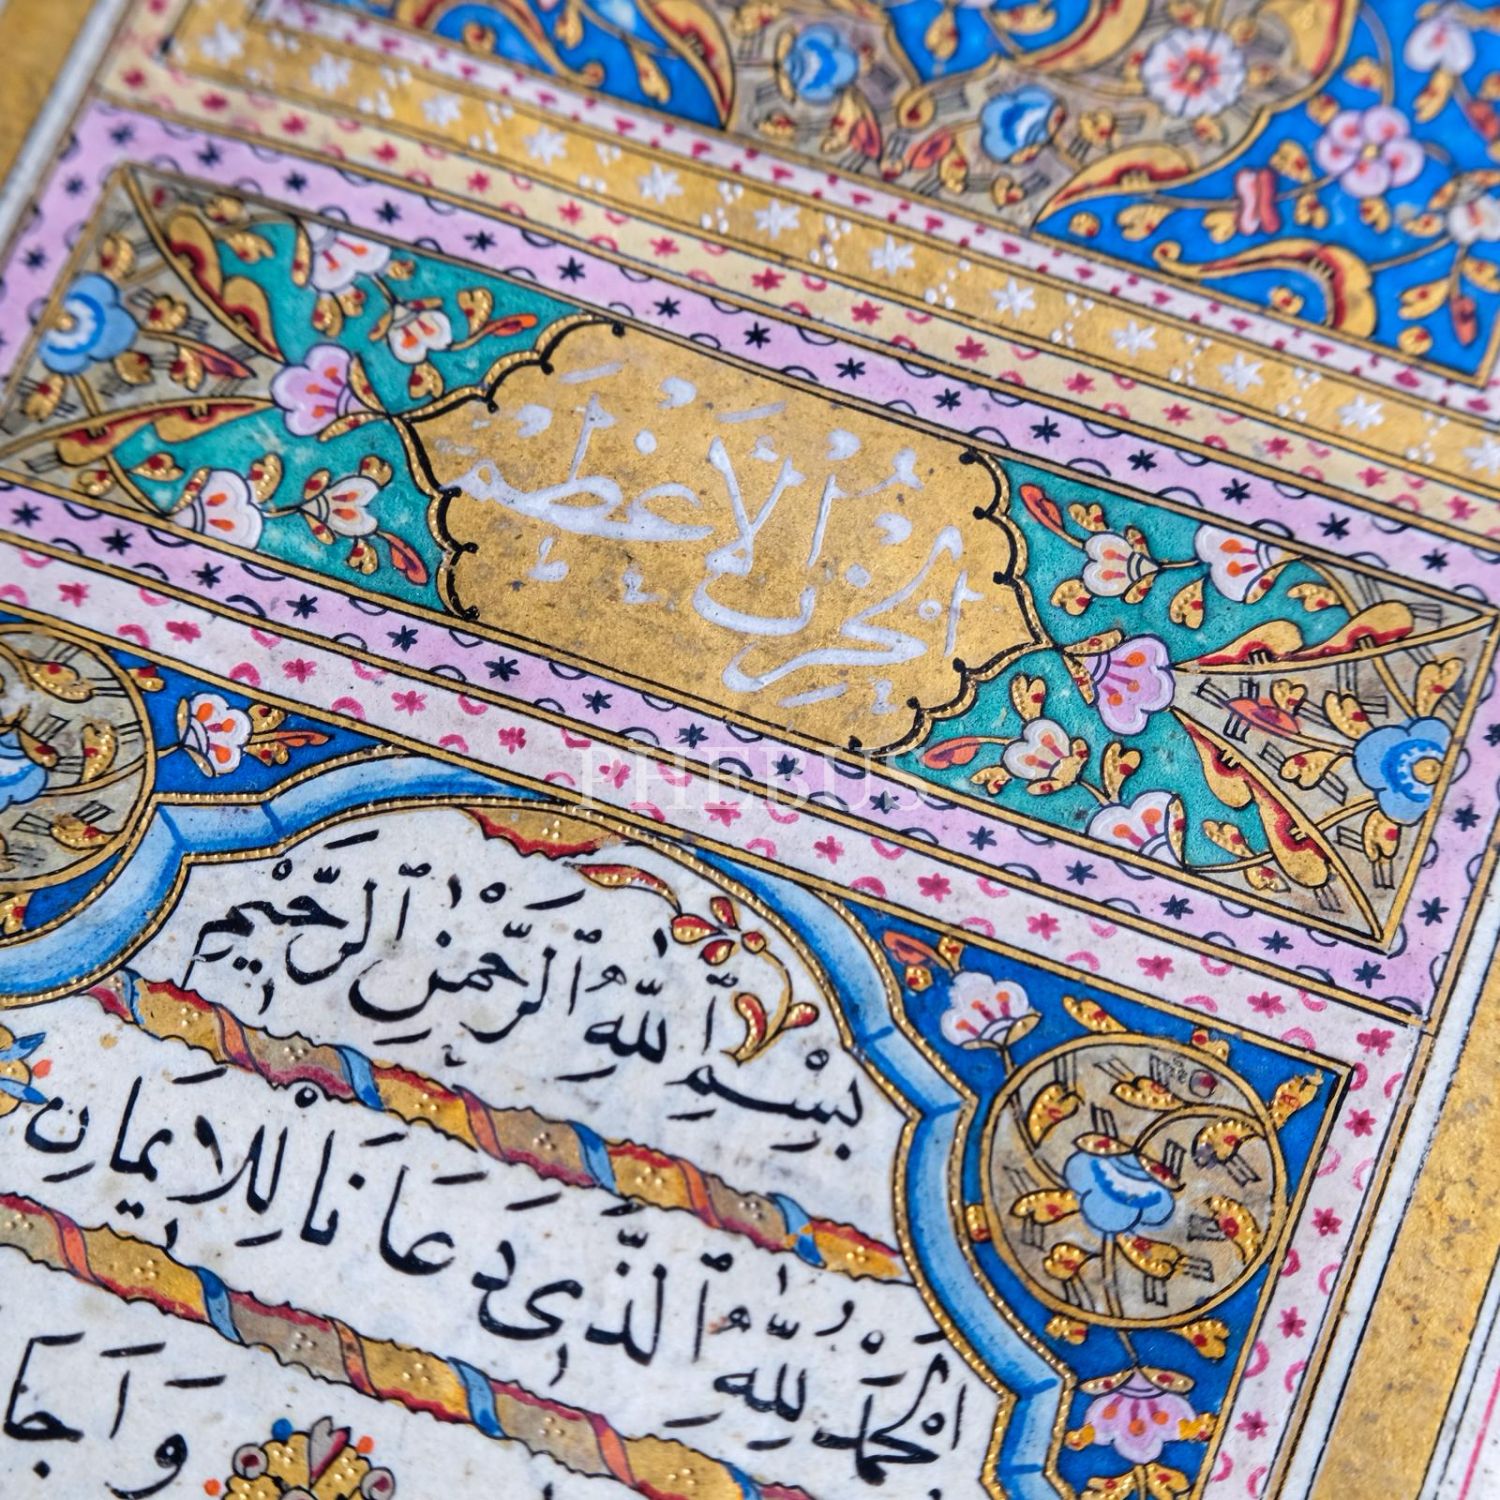 الحِزْبُ الْاَعْظَمُ
PHEBUS
بِسْمِ ٱللّٰهِ ٱلرَّحْمٰنِ ٱلرَّحِيْمِ
اَلْحَمْدُ لِلّٰهِ ٱلَّذِى دَعَانَا لِلْاِيمَانِ